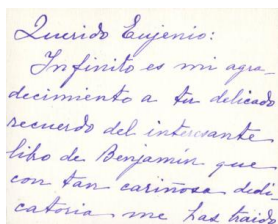 Querido Eujenio:
Infinito es mi agra-
decimiento a tu delicado
recuerdo del interesante
libo de Benjamín que
con tan cariñosa dedi
catoria me has traido